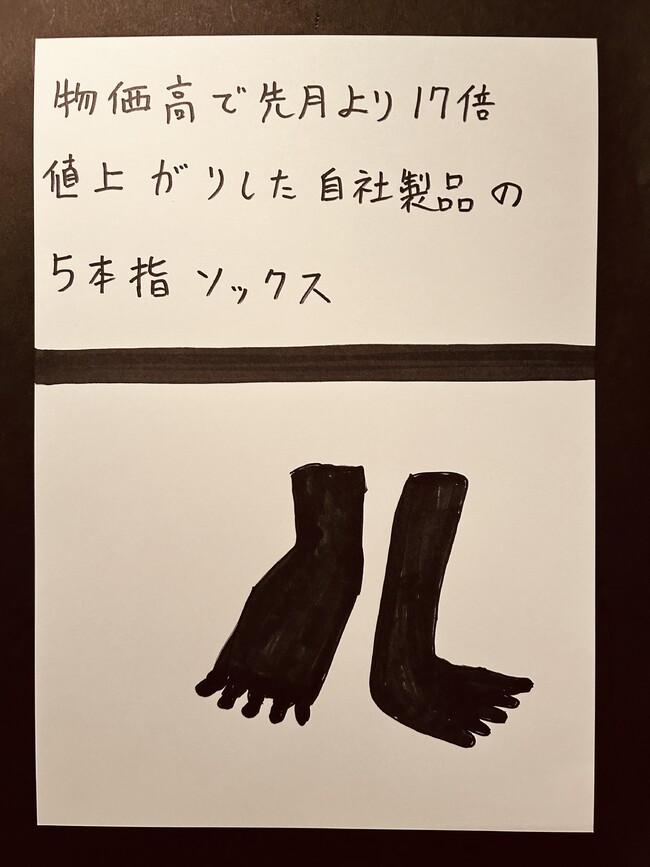 物価高で先月より17倍
値上がりした自社製品の
5本指ソックス